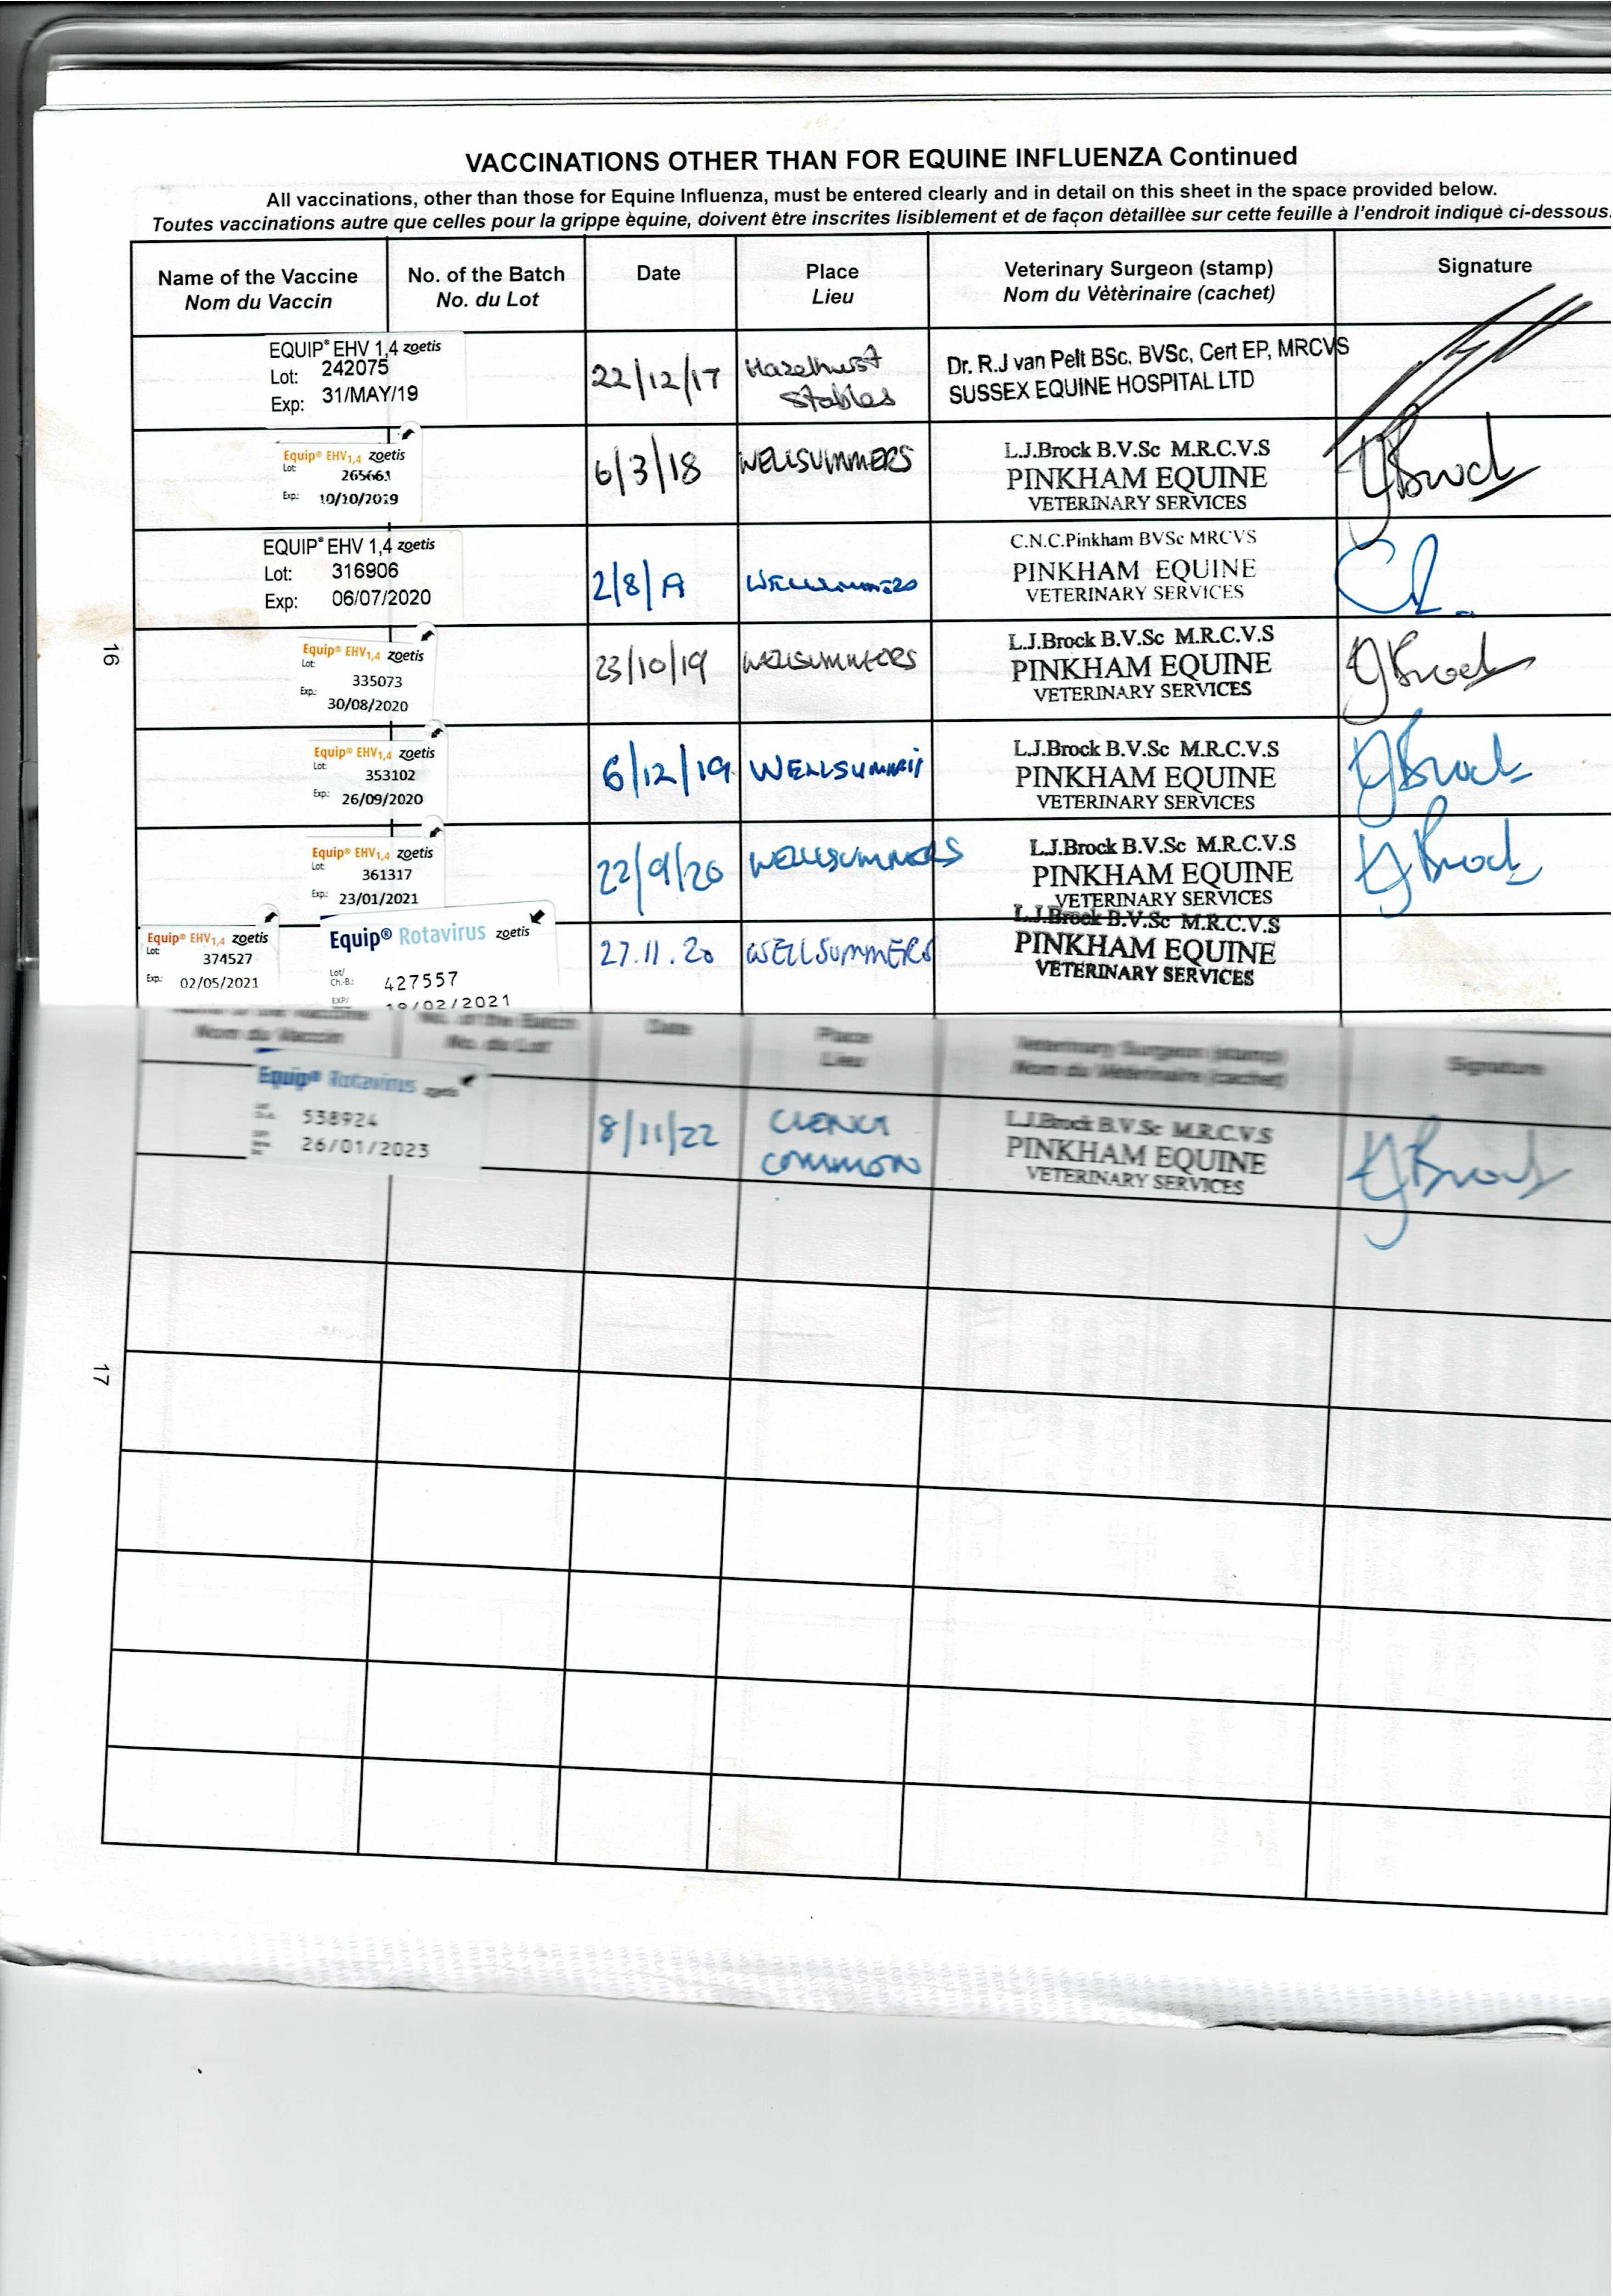 VACCINATIONS OTHER THAN FOR EQUINE INFLUENZA Continued
All vaccinations, other than those for Equine Influenza, must be entered clearly and in detail on this sheet in the space provided below.
Toutes vaccinations autre que celles pour la grippe èquine, doivent être inscrites lisiblement et de façon dètaillèe sur cette feuille à l'endroit indiquè ci-dessous.
Name of the Vaccine No. of the Batch Date Place Veterinary Surgeon (stamp) Signature
Nom du Vaccin No. du Lot Lieu Nom du Vètèrinaire (cachet)
EQUIP® EHV 1,4 zoetis
Lot: 242075
Exp: 31/MAY/19
22/12/17 Hazelhurst
Stables
Dr. R.J van Pelt BSc, BVSc, Cert EP, MRCVS
SUSSEX EQUINE HOSPITAL LTD
Equip® EHV1,4 zoetis
Lot: 265661
Exp.: 10/10/2019
6/3/18 WELLSUMMERS
L.J.Brock B.V.Sc M.R.C.V.S
PINKHAM EQUINE
VETERINARY SERVICES
EQUIP® EHV 1,4 zoetis
Lot: 316906
Exp: 06/07/2020
2/8/
C.N.C.Pinkham BVSc MRCVS
PINKHAM EQUINE
VETERINARY SERVICES
16
Equip® EHV1,4 zoetis
Lot: 335073
Exp.: 30/08/2020
23/10/19 WELLSUMMERS
L.J.Brock B.V.Sc M.R.C.V.S
PINKHAM EQUINE
VETERINARY SERVICES
Equip® EHV1,4 zoetis
Lot: 353102
Exp: 26/09/2020
6/12/19
L.J.Brock B.V.Sc M.R.C.V.S
PINKHAM EQUINE
VETERINARY SERVICES
Equip® EHV1,4 zoetis
Lot: 361317
Exp: 23/01/2021
22/9/20 WELLSUMMERS
L.J.Brock B.V.Sc M.R.C.V.S
PINKHAM EQUINE
VETERINARY SERVICES
Equip® EHV1,4 zoetis
Lot: 374527
Exp: 02/05/2021
Equip® Rotavirus zoetis
Lot/
Ch.-B.: 427557
EXP/ /02/2021
27.11.20 WELLSUMMERS
L.J.Brock B.V.Sc M.R.C.V.S
PINKHAM EQUINE
VETERINARY SERVICES
Name of the Vaccine No. of the Batch Date Place Veterinary Surgeon (stamp) Signature
Nom du Vaccin No. du Lot Lieu Nom du Vètèrinaire (cachet)
Equip® Rotavirus zoetis
538924
26/01/2023
8/11/22
COMMON
L.J.Brock B.V.Sc M.R.C.V.S
PINKHAM EQUINE
VETERINARY SERVICES
17